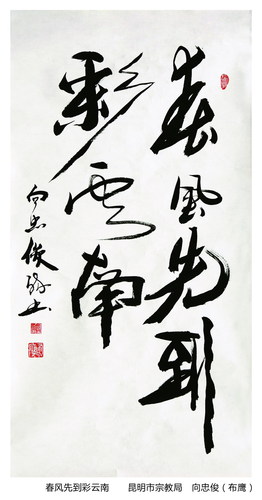 春風先到
彩雲南
向忠俊
春风先到彩云南 昆明市宗教局 向忠俊（布鹰）